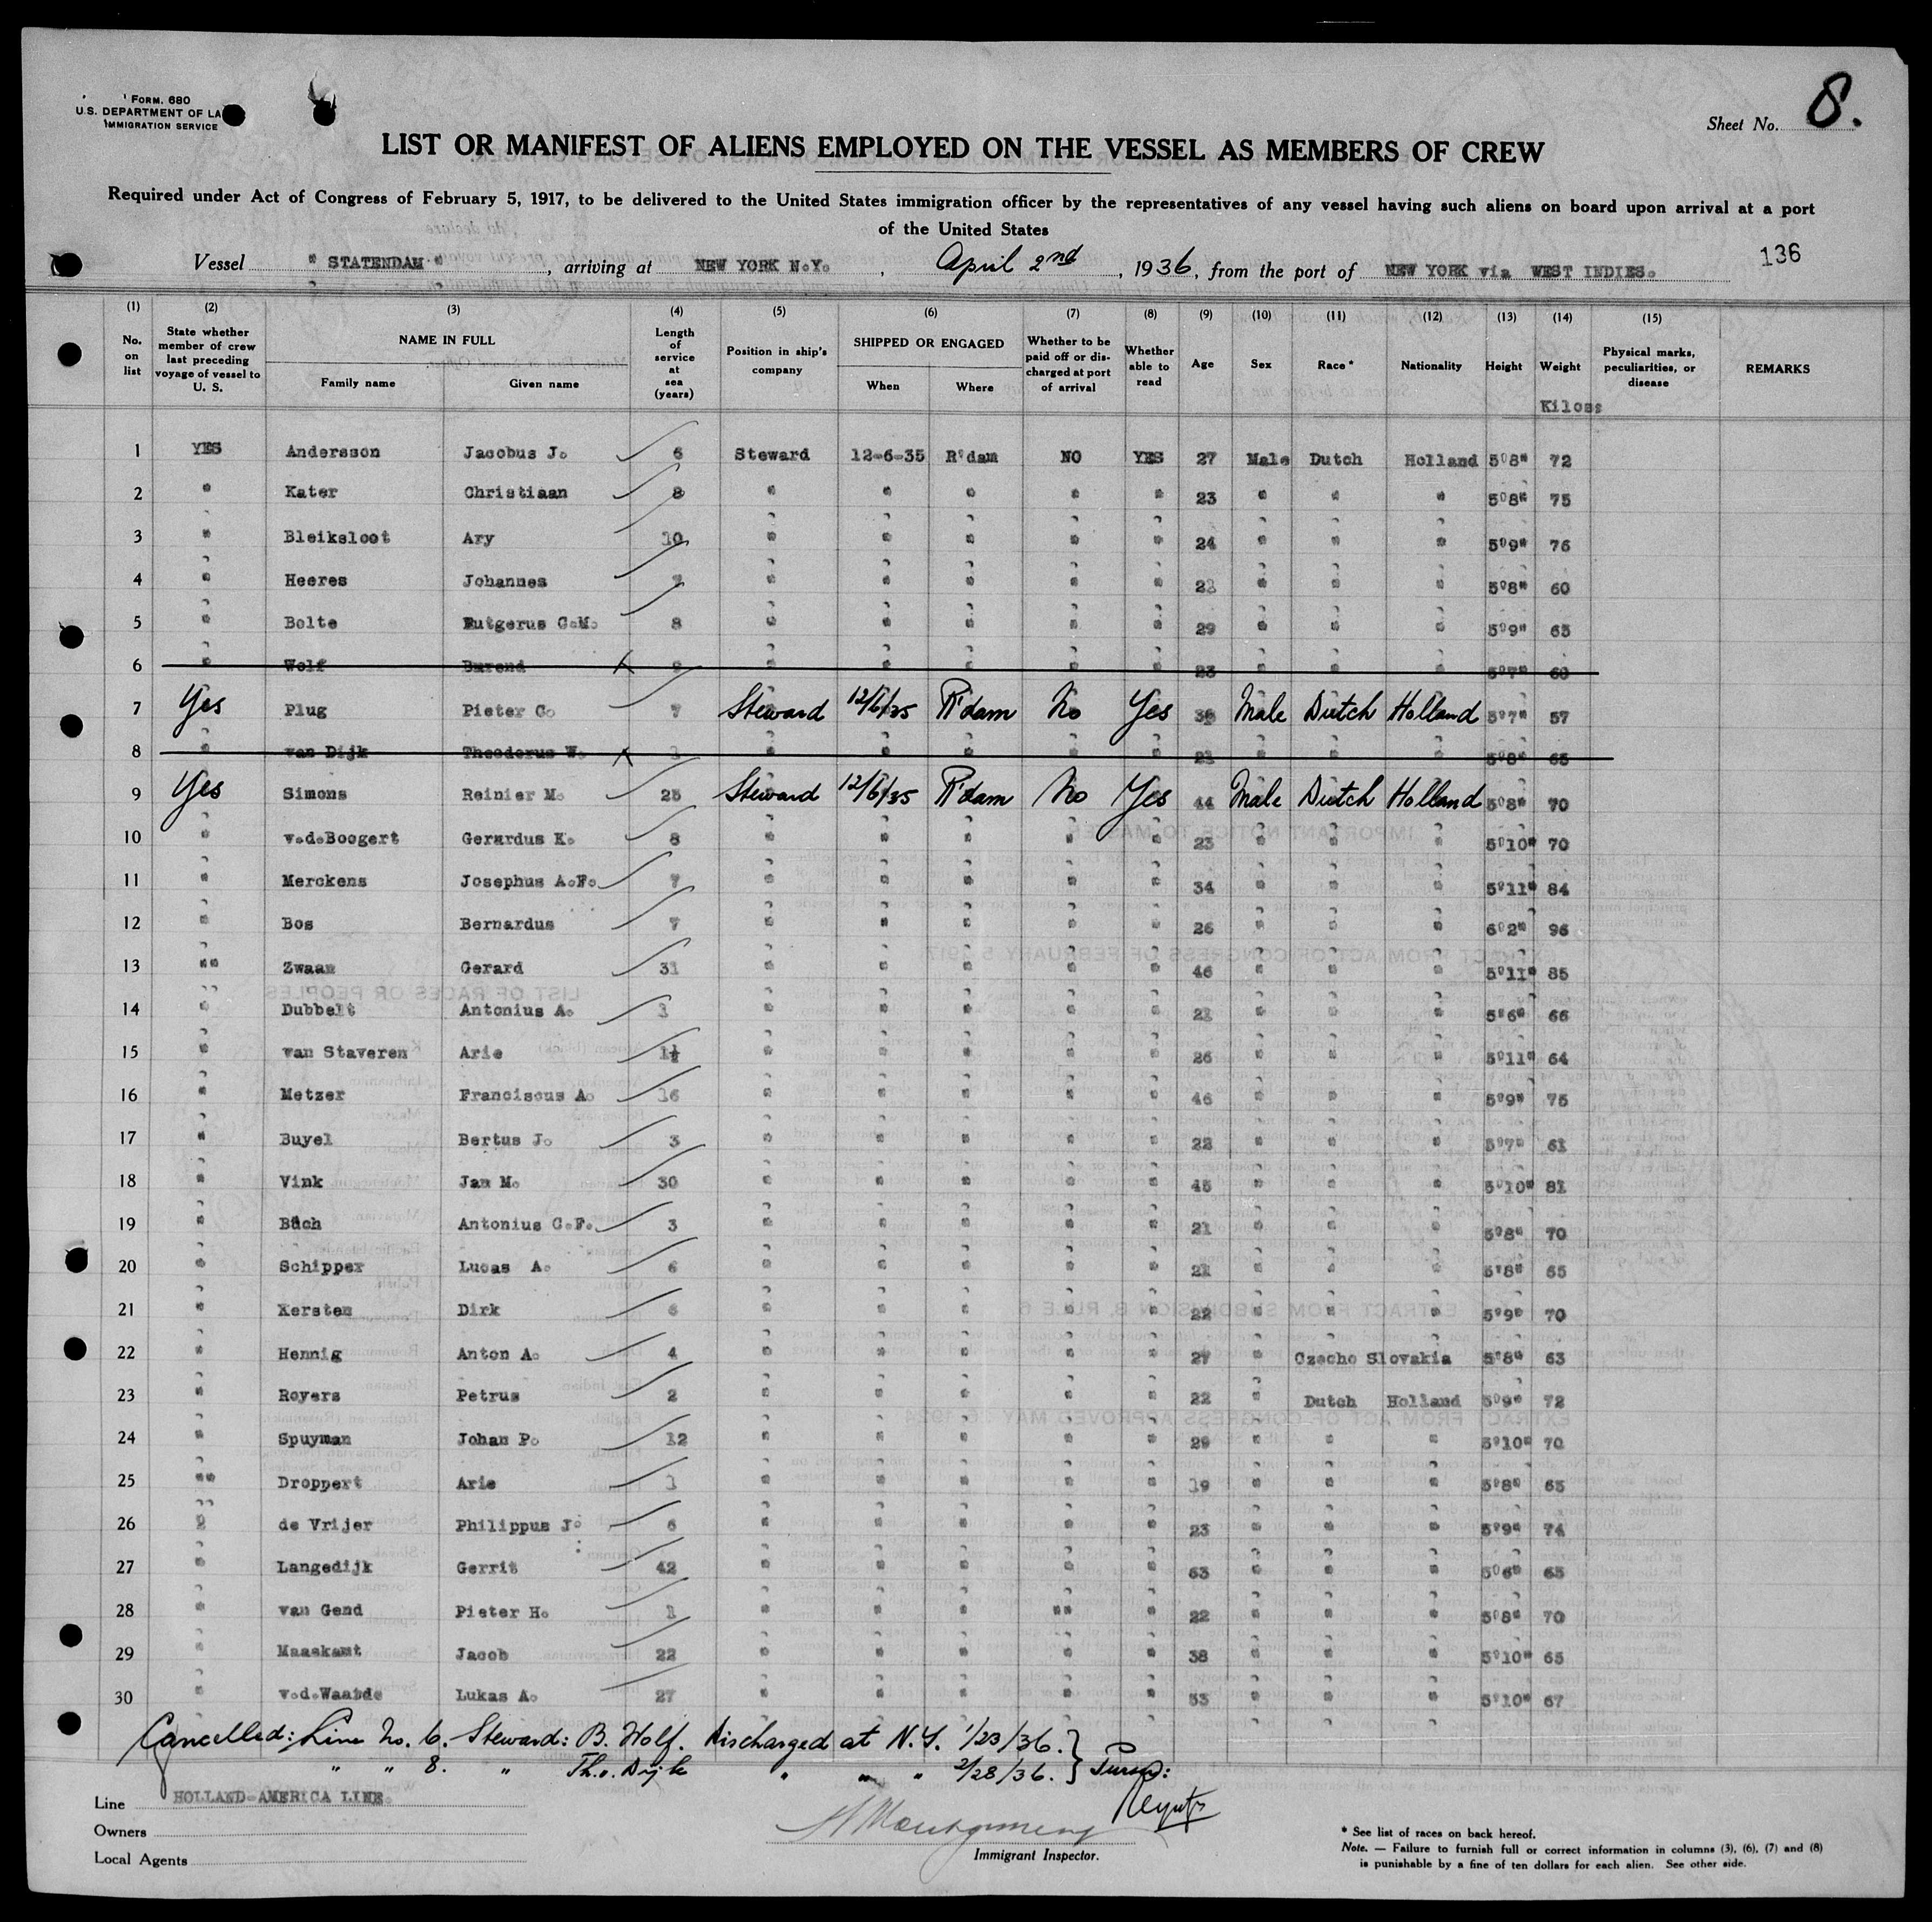 FORM. 680
U.S. DEPARTMENT OF LA
IMMIGRATION SERVICE
Sheet No. 8.
LIST OR MANIFEST OF ALIENS EMPLOYED ON THE VESSEL AS MEMBERS OF CREW
Required under Act of Congress of February 5, 1917, to be delivered to the United States immigration officer by the representatives of any vessel having such aliens on board upon arrival at a port
of the United States
Vessel "STATENDAM", arriving at NEW YORK N.Y., April 2nd, 1936, from the port of NEW YORK via WEST INDIES.
136
(1) (2) (3) (4) (5) (6) (7) (8) (9) (10) (11) (12) (13) (14) (15)
No. on list
State whether member of crew last preceding voyage of vessel to U. S.
NAME IN FULL
Family name
Given name
Length of service at sea (years)
Position in ship's company
SHIPPED OR ENGAGED
When
Where
Whether to be paid off or discharged at port of arrival
Whether able to read
Age
Sex
Race *
Nationality
Height
Weight
Physical marks, peculiarities, or disease
REMARKS
Kilos
1 YES Andersson Jacobus J. 6 Steward 12-6-35 R'dam NO YES 27 Male Dutch Holland 5'8" 72
2 " Kater Christiaan 8 " " " " " 23 " " " 5'8" 75
3 " Bleiksloot Ary 10 " " " " " 24 " " " 5'9" 76
4 " Heeres Johannes " " " " " " " " 5'8" 60
5 " Bolte Rutgerus C.M. 8 " " " " " 29 " " " 5'9" 65
6 " Wolf Barend " " " " " 23 " " " 5'7" 60
7 Yes Plug Pieter C. 7 Steward 12/6/35 R'dam No Yes Male Dutch Holland 5'7" 57
8 " van Dijk Theodorus W. " " " " " 21 " " " 5'8" 65
9 Yes Simons Reinier M. 25 Steward 12/6/35 R'dam No Yes 44 Male Dutch Holland 5'8" 70
10 " v.d.Boogert Gerardus K. 8 " " " " " 23 " " " 5'10" 70
11 " Merckens Josephus A.F. 7 " " " " " 34 " " " 5'11" 84
12 " Bos Bernardus 7 " " " " " 26 " " " 6'2" 96
13 "" Zwaan Gerard 31 " " " " " 46 " " " 5'11" 85
14 " Dubbelt Antonius A. 1 " " " " " 21 " " " 5'6" 66
15 " van Staveren Arie 1½ " " " " " 26 " " " 5'11" 64
16 " Metzer Franciscus A. 16 " " " " " 46 " " " 5'9" 75
17 " Buyel Bertus J. 3 " " " " " 22 " " " 5'7" 61
18 " Vink Jan M. 30 " " " " " 45 " " " 5'10" 81
19 " Bach Antonius C.F. 3 " " " " " 21 " " " 5'8" 70
20 " Schipper Lucas A. 6 " " " " " 21 " " " 5'8" 65
21 " Kersten Dirk 6 " " " " " 22 " " " 5'9" 70
22 " Hennig Anton A. 4 " " " " " 27 " Czecho Slovakia 5'8" 63
23 " Royers Petrus 2 " " " " " 22 " Dutch Holland 5'9" 72
24 " Spuyman Johan P. 12 " " " " " 29 " " " 5'10" 70
25 "" Droppert Arie 1 " " " " " 19 " " " 5'8" 65
26 " de Vrijer Philippus J. 6 " " " " " 23 " " " 5'9" 74
27 " Langedijk Gerrit 42 " " " " " 63 " " " 5'6" 65
28 " van Gend Pieter H. 1 " " " "" " 22 " " " 5'8" 70
29 " Maaskant Jacob 22 " " " " " 38 " " " 5'10" 65
30 " v.d.Waarde Lukas A. 27 " " " " " 53 " " " 5'10" 67
Cancelled: Line No. 6. Steward: B. Wolf. Discharged at N.Y. 1/23/36.
" " 8. " Th. v. Dijk " " " 2/28/36. } Purser:
Line HOLLAND-AMERICA LINE.
Owners
Local Agents
Montgomery
Immigrant Inspector.
* See list of races on back hereof.
Note. — Failure to furnish full or correct information in columns (3), (6), (7) and (8)
is punishable by a fine of ten dollars for each alien. See other side.